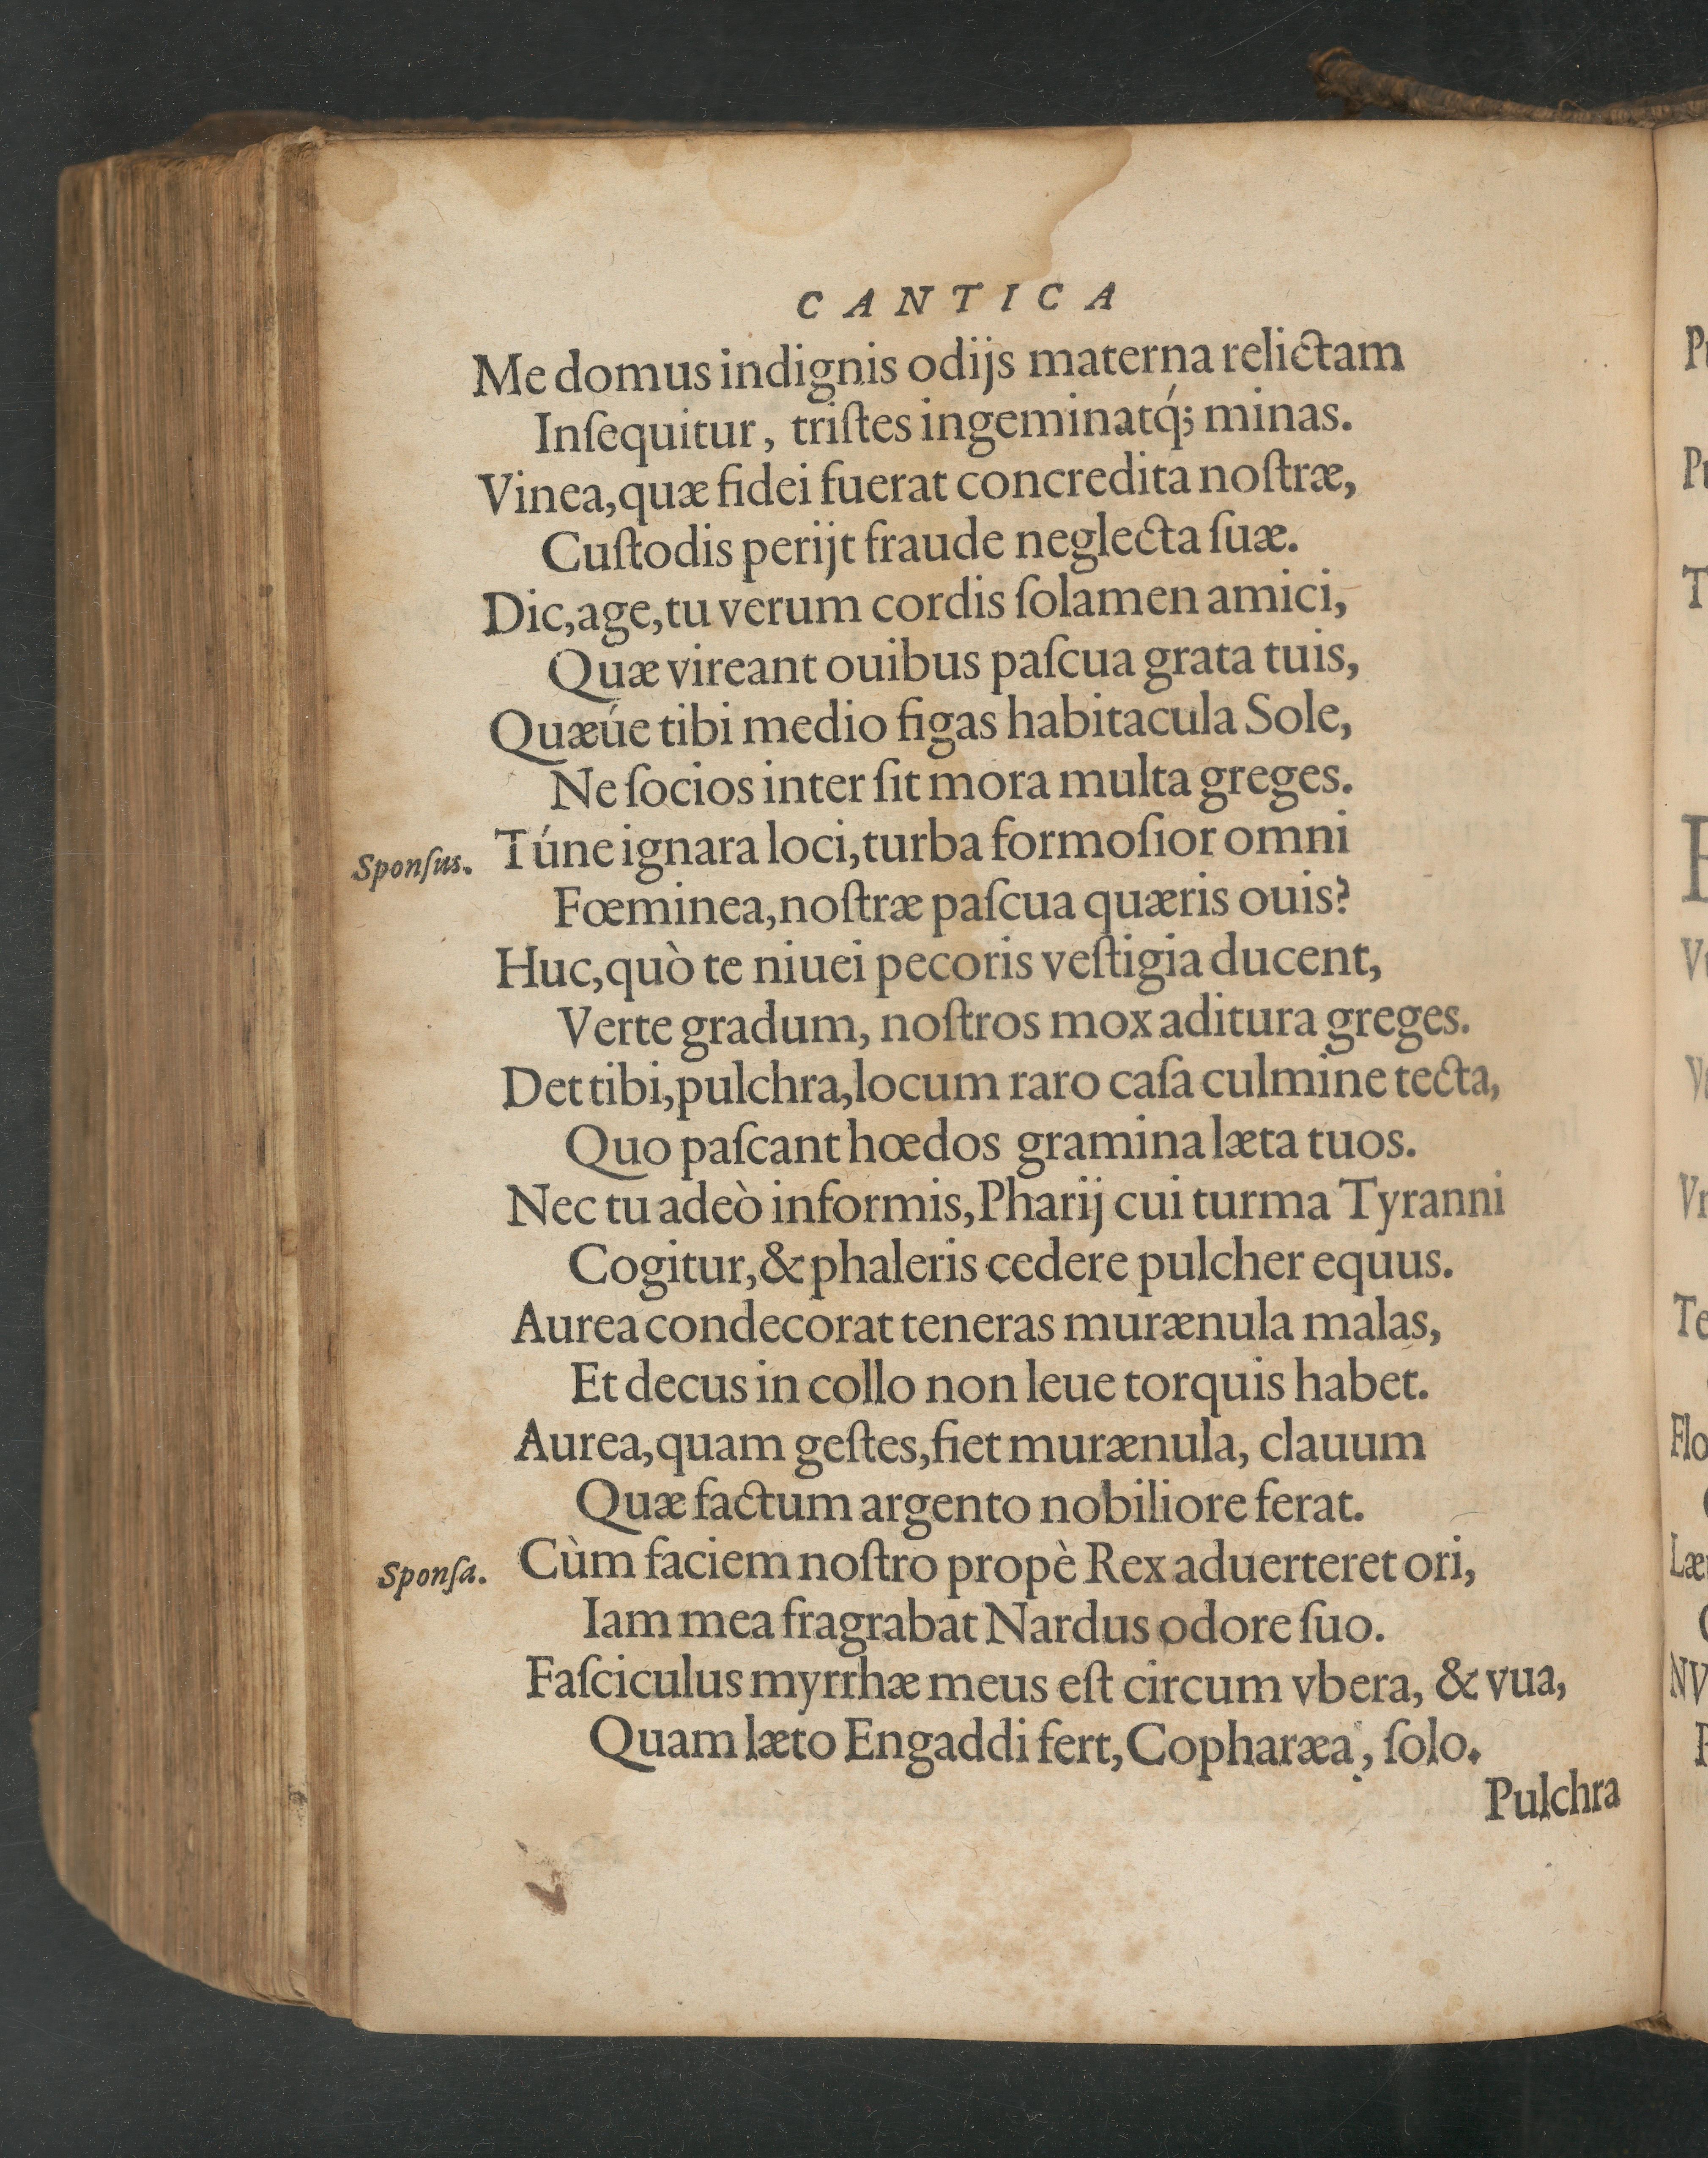 CANTICA
Me domus indignis odijs materna relictam
Inſequitur, triſtes ingeminatq́; minas.
Vinea, quæ fidei fuerat concredita noſtræ,
Cuſtodis perijt fraude neglecta ſuæ.
Dic, age, tu verum cordis ſolamen amici,
Quæ vireant ouibus paſcua grata tuis,
Quæúe tibi medio figas habitacula Sole,
Ne ſocios inter ſit mora multa greges.
Sponſus. Túne ignara loci, turba formoſior omni
Fœminea, noſtræ paſcua quæris ouis?
Huc, quò te niuei pecoris veſtigia ducent,
Verte gradum, noſtros mox aditura greges.
Det tibi, pulchra, locum raro caſa culmine tecta,
Quo paſcant hœdos gramina læta tuos.
Nec tu adeò informis, Pharij cui turma Tyranni
Cogitur, & phaleris cedere pulcher equus.
Aurea condecorat teneras murænula malas,
Et decus in collo non leue torquis habet.
Aurea, quam geſtes, fiet murænula, clauum
Quæ factum argento nobiliore ferat.
Sponſa. Cùm faciem noſtro propè Rex aduerteret ori,
Iam mea fragrabat Nardus odore ſuo.
Faſciculus myrrhæ meus eſt circum vbera, & vua,
Quam læto Engaddi fert, Copharæa, ſolo.
Pulchra